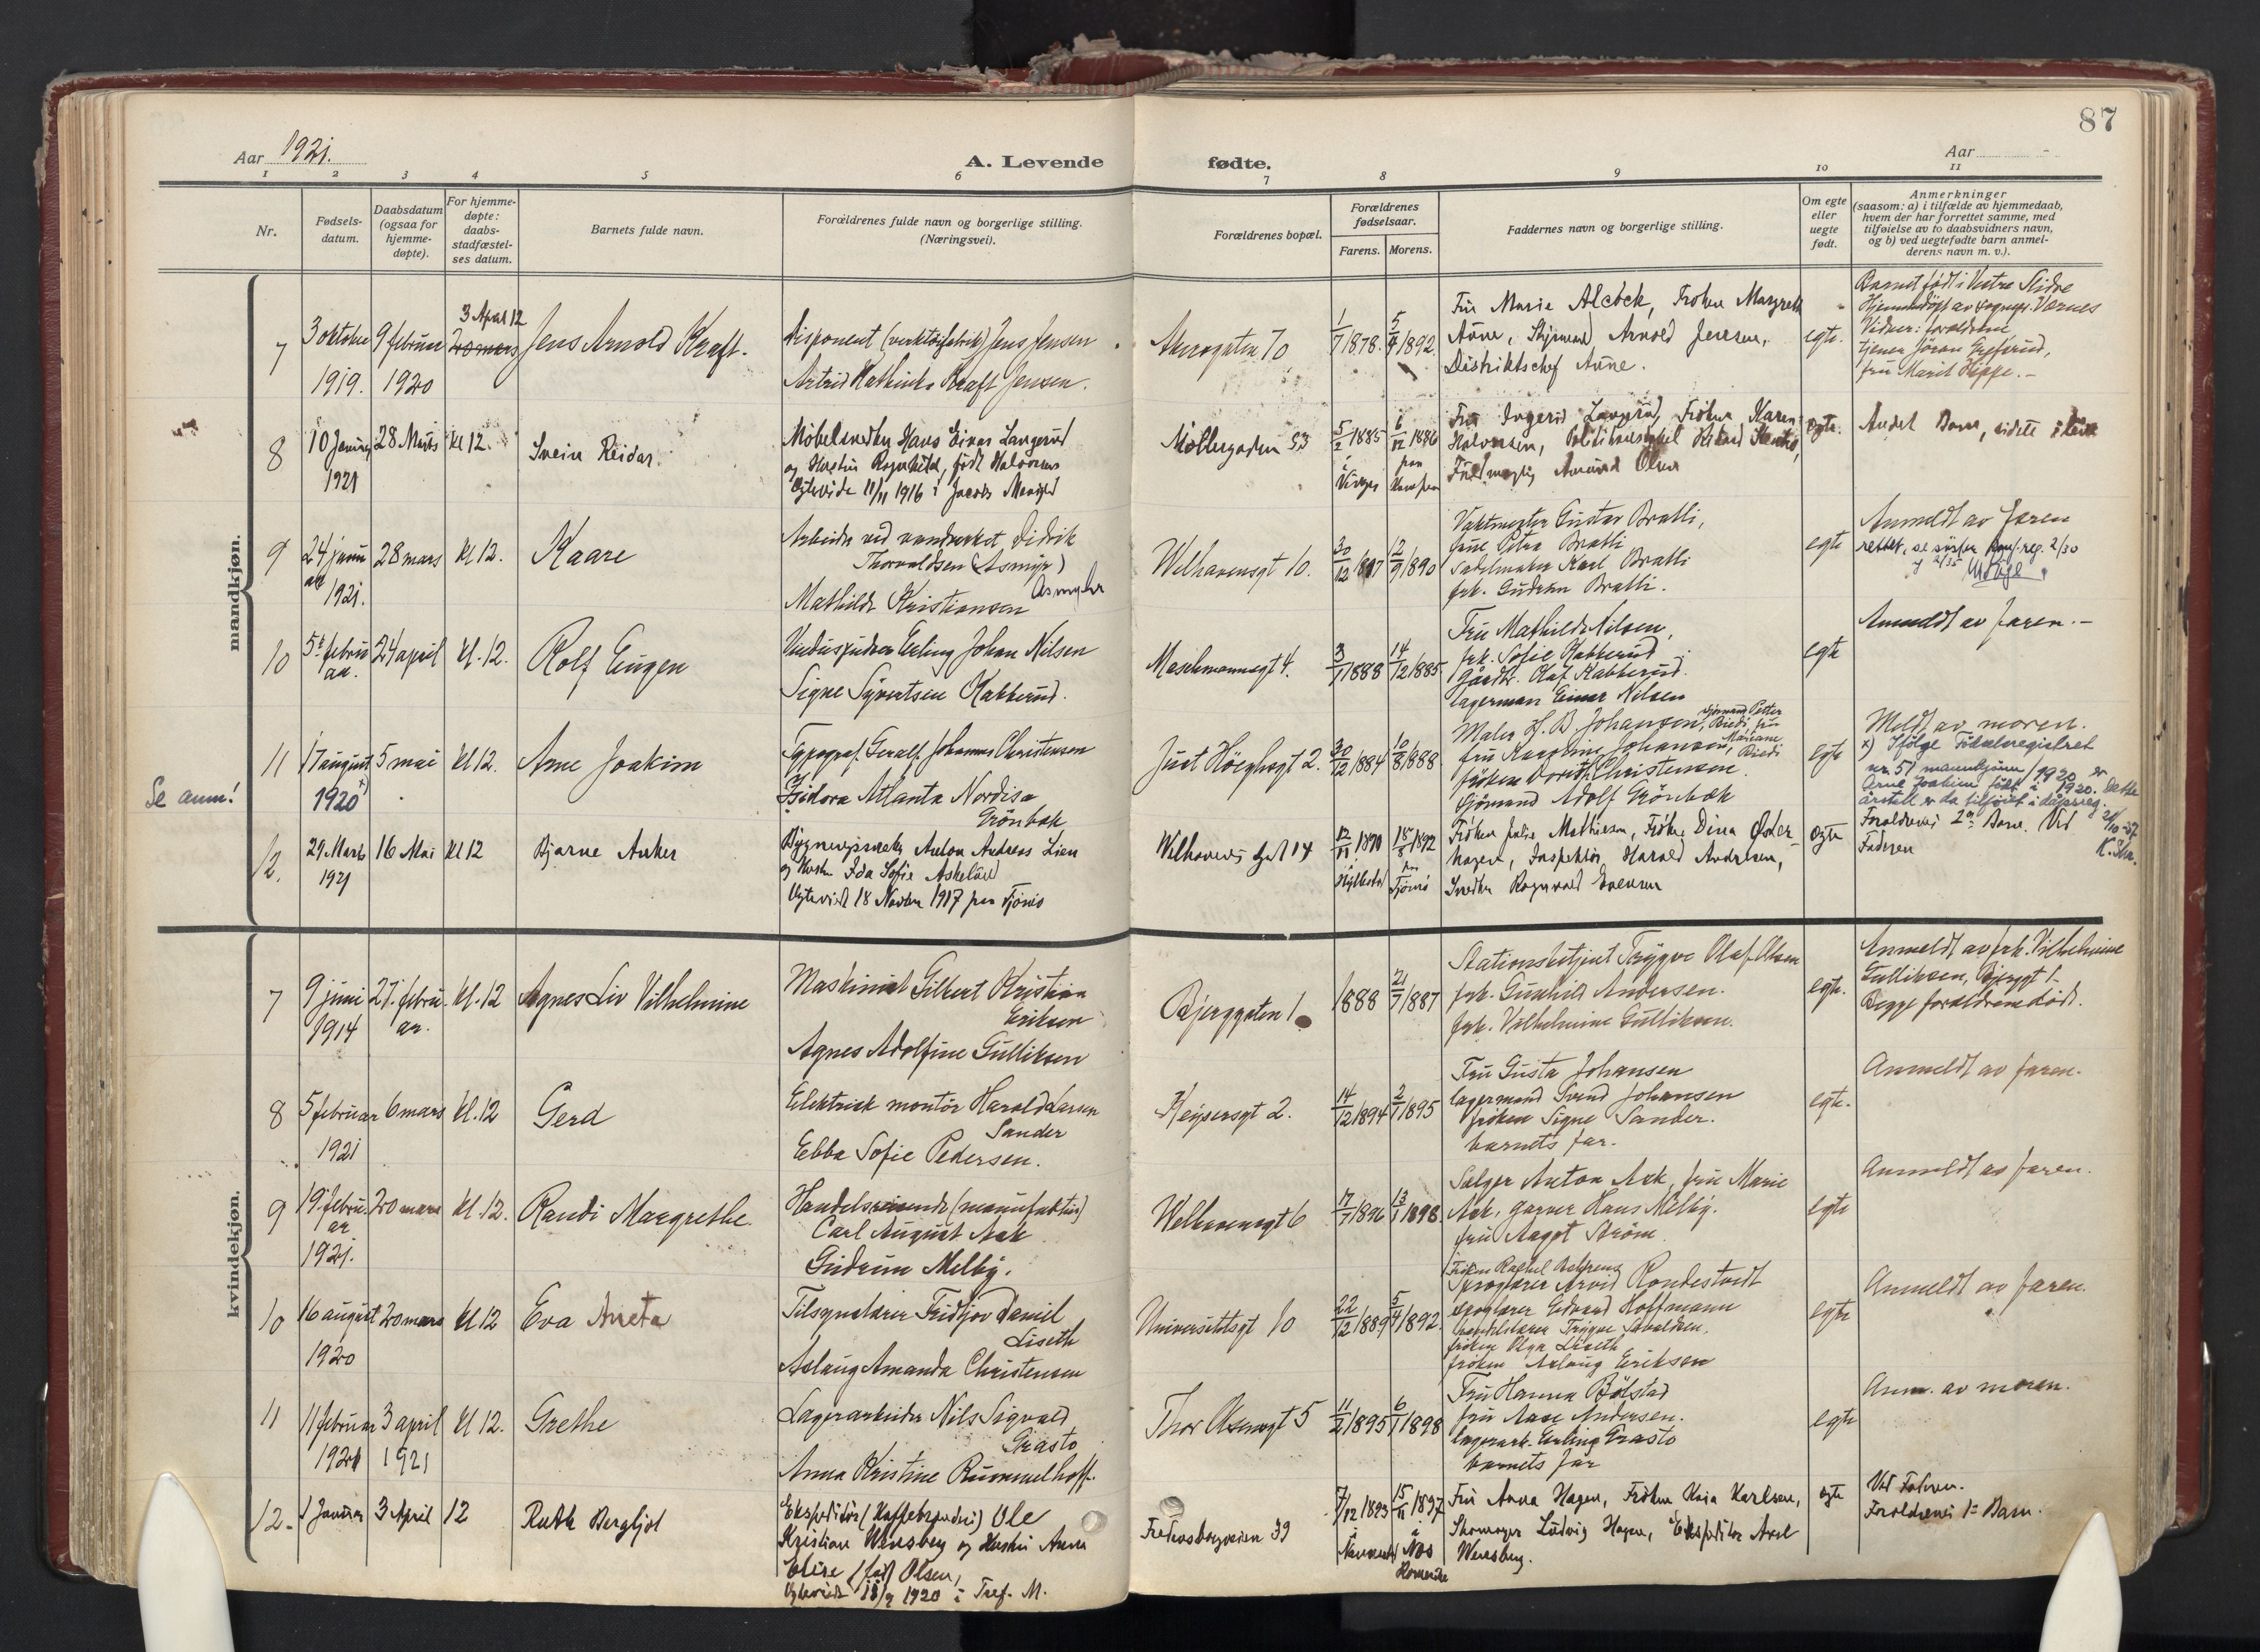 87
Aar 1921.
A. Levende fødte.
Aar
1 2 3 4 5 6 7 8 9 10 11
Nr.
Fødsels-
datum.
Daabsdatum
(ogsaa for
hjemme-
døpte).
For hjemme-
døpte:
daabs-
stadfæstel-
ses datum.
Barnets fulde navn.
Forældrenes fulde navn og borgerlige stilling.
(Næringsvei).
Forældrenes bopæl.
Forældrenes
fødselsaar.
Farens. Morens.
Faddernes navn og borgerlige stilling.
Om egte
eller
uegte
født.
Anmerkninger
(saasom: a) i tilfælde av hjemmedaab,
hvem der har forrettet samme, med
tilføielse av to daabsvidners navn,
og b) ved uegtefødte barn anmel-
derens navn m. v.).
mandkjøn.
7
3 oktober
1919.
9 februar
1920
3 April 12
20 mars
Jens Arnold Kraft.
Disponent (verktøifabrik) Jens Jensen
Astrid Kathinka Kraft Jensen.
Akersgaten 70
1/7 1878.
5/4 1892.
Fru Marie Alcock, Frøken Margreth
Aune, Arnold Jensen,
Distriktschef Aune.
egte.
Barnet født i Vestre Slidre
Hjemmedøpt av sognepr. Værnes
Vidner: forældrene
fru Marit
8
10 Januar
1921
28 Marts
kl 12.
Svein Reidar.
Møbelsnedker Hans Einar Langerud
og Hustru Ragnhild, født Halvorsen
Egteviede 11/11 1916 i Jacobs Menighed
Møllergaden 33
5/2 1885
6/12 1886
Fru Ingerid Langerud, Frøken Karen
Halvorsen,
Fuldmægtig Amund Olsen
egte.
Andet Barn, sidste i live
9
24 janu
ar
1921.
28 mars
kl 12.
Kaare
Arbeider ved vandverket Didrik
Thorvaldsen (Asmyr)
Asmyhr
Mathilde Kristiansen
Welhavensgt 10.
30/12 1887
12/9 1890
Vaktmester Gustav Bratli,
frue Petra Bratli
Sadelmaker Karl Bratli
frk. Gudrun Bratli.
egte
Anmeldt av faren
rettet, se 2/30
10
5te febru
ar.
24 april
kl. 12.
Rolf Eugen
Vinduspudser Erling Johan Nilsen
Signe Syvertsen Kabberud.
Maschmannsgt 4.
3/1 1888
14/12 1885
Fru Mathilde Nilsen,
frk. Sofie Kabberud
Gaardbr. Olaf Kabberud.
lagermann Einar Nilsen
egte
Anmeldt av faren.-
Se anm!
11
17 august
1920 x)
5 mai
kl 12.
Arne Joakim
Typograf. Geralf Johannes Christensen
Isidora Atlanta Nordisa
Grønbæk
Just Høeghsgt 2.
30/12 1884
10/8 1888
Maler H. B. Johansen, sjømand Petter
fru Johansen, Mariane
frøken Dorith Christensen.
Sjømand Adolf Grønbæk
egte
Meldt av moren.
x) Ifølge Fødselsregistret
nr. 51 mannkjønn/1920 er
Arne Joakim født i 1920. Dette
årstall er da tilføiet i dåpsreg.
21/10-37
12.
29. Marts
1921
16 Mai
kl 12
Bjarne Anker
Anton Andreas Lien
og Hustru Ida Sofie Askeland
Egteviet 18 Novbr 1917 paa Tjømø
Welhavens gt 14
12/11 1890
15/8 1892
paa
Tjømø
Frøken Julie Mathiesen, Frøken Dina Øster-
hagen, Inspektør Harald Andresen,
Snedker Ragnvald Evensen
egte
Forældrenes 2det Barn. Ved
Faderen
kvindekjøn.
7
9 juni
1914
27. febru
ar.
kl. 12
Agnes Liv Vilhelmine
Maskinist Gilbert Kristian
Eriksen
Agnes Adolfine Gulliksen
Bjerggaten 1
1888
21/7 1887
Stationsbetjent Trygve Olaf Olsen
frk. Gunhild Andersen.
frk. Vilhelmine Gulliksen.
egte.
Anmeldt av frk. Vilhelmine
Gulliksen, Bjerggt 1.
Begge forældrene død.
8
5 februar
1921
6 mars
kl. 12
Gerd
Elektrisk montør Harald Larsen
Sander
Ebba Sofie Pedersen.
Keysersgt 2.
14/12 1894
2/1 1895
Fru Gusta Johansen
lagermand Svend Johansen
frøken Signe Sander.
barnets far.
egte.
Anmeldt av faren.
9
19. febru
ar
1921.
20 mars
kl. 12.
Randi Margrethe.
Handelsreisende (manufaktur)
Carl August Aak
Gudrun Melby.
Welhavensgt 6
17/7 1896
13/1 1898
Sælger Anton Aak, fru Marie
Aak, garver Hans Melby.
fru Aagot Strøm
egte
Anmeldt av faren.
10
16 august
1920
20 mars
kl 12
Eva Aneta
Tilsynslærer Fridtjov Daniel
Liseth
Aslaug Amanda Christensen
Universitetsgt 10
22/12 1889
5/4 1892.
Frøken Rachel
Sproglærer Arvid Rondestvedt
sproglærer Edvard Hoffmann
handelslærer Trygve
frøken Olga Liseth
frøken Aslaug Eriksen
egte
Anmeldt av faren.
11
11 februar
1921
3 april
1921
kl 12.
Grethe
Lagerarbeider Nils Sigvald
Grasto
Anna Kristine Rummelhoff.
Thor Olsensgt 5
11/2 1895
6/1 1898
Fru Hanna Bølstad
fru Aase Andersen.
lagerarb. Erling Grasto
barnets far
egte
Anm. av moren.
12.
1 Januar
3 April
12
Ruth Bergljot
Ekspeditør (Kaffebrænderi) Ole
Kristian Wensberg og Hustru Anna
Elise født Olsen,
Egteviede 18/9 1920 i Tref. M.
Fredensborgveien 39
7/12 1893
15/11 1897
Næs
Romerike
Fru Anna Hagen, Frøken Kaia Karlsen,
Skomager Ludvig Hagen, Ekspeditør Axel
Wensberg.
egte
Ved Faderen.
Forældrenes 1ste Barn.